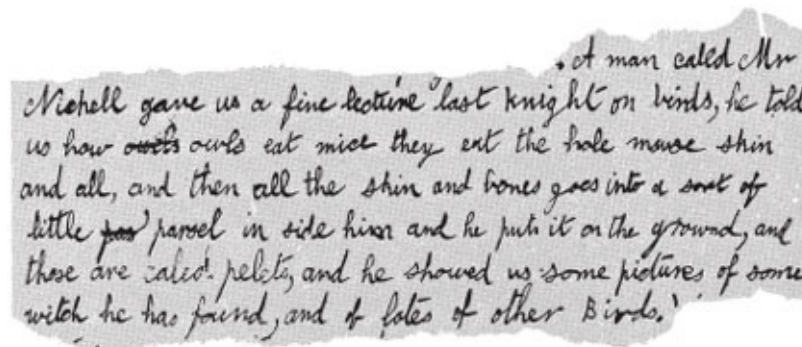 . A man called Mr
Nichell gave us a fine lecture last knight on birds, he told
us how owls owls eat mice they eat the hole mouse skin
and all, and then all the skin and bones goes into a sort of
little pas parsel in side him and he puts it on the ground, and
those are caled pelets, and he showed us some pictures of some
witch he has found, and of fotes of other Birds.'